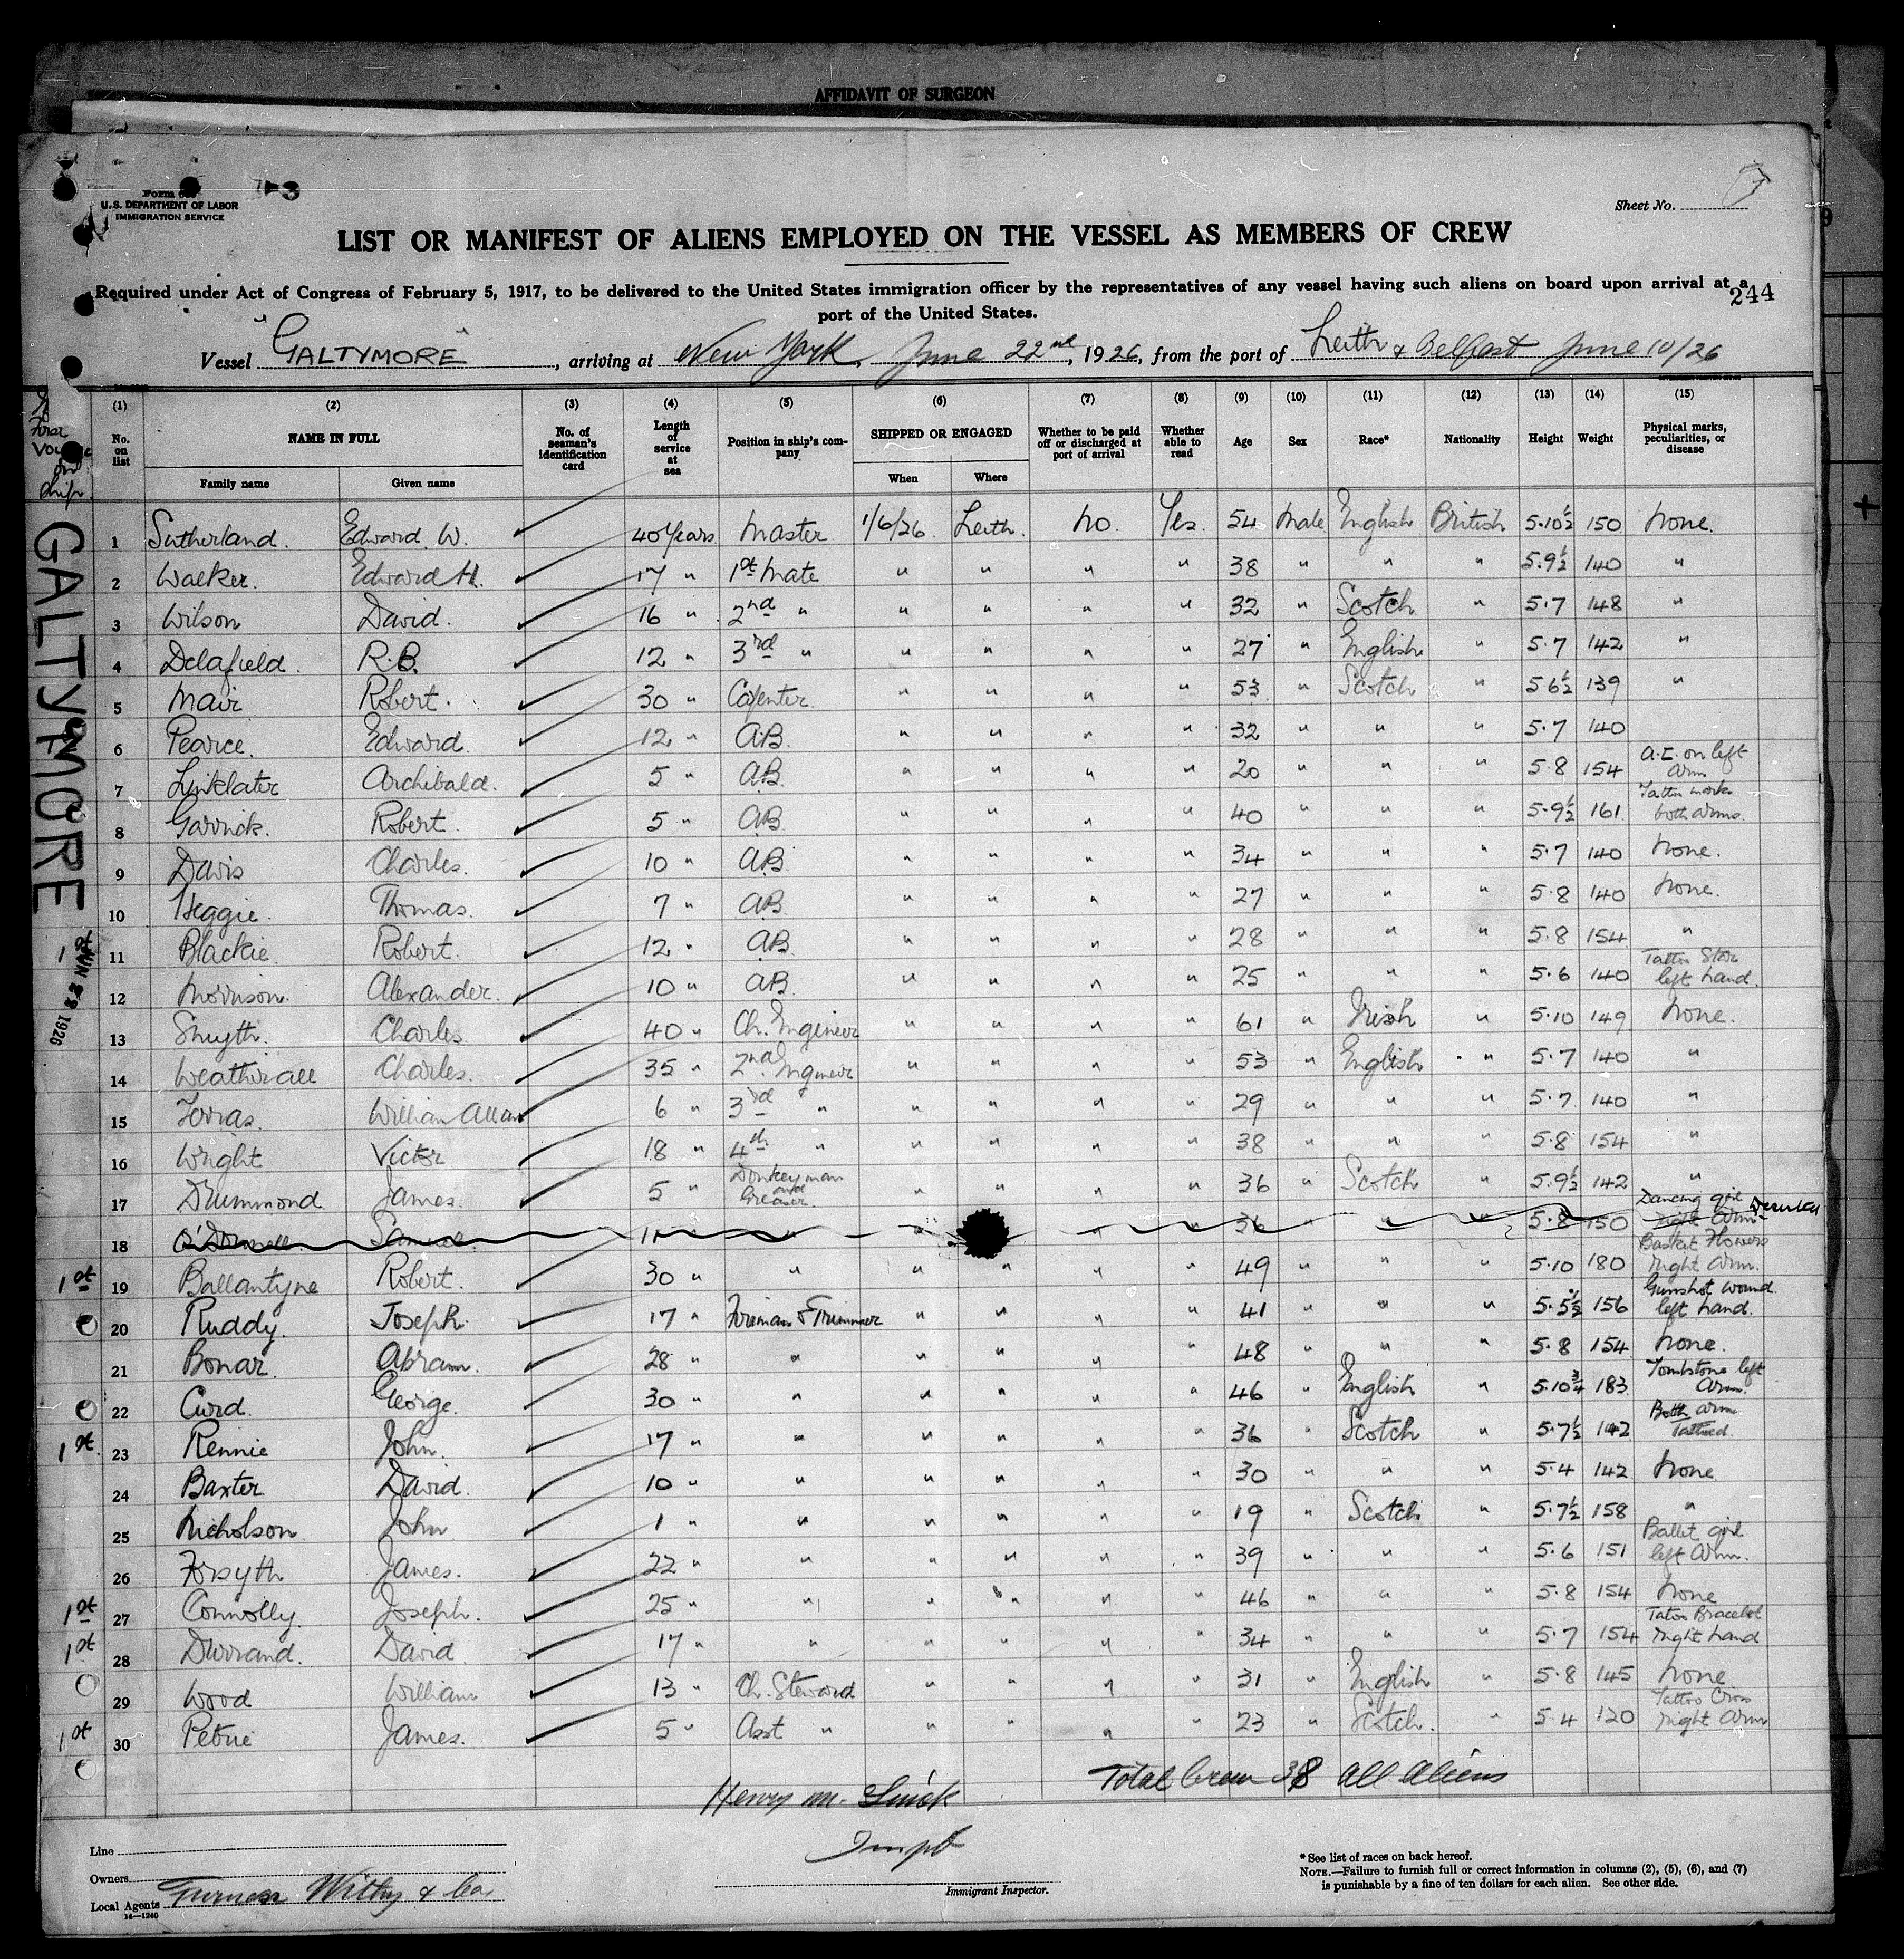 AFFIDAVIT OF SURGEON
Form
U.S. DEPARTMENT OF LABOR
IMMIGRATION SERVICE
3
Sheet No.
LIST OR MANIFEST OF ALIENS EMPLOYED ON THE VESSEL AS MEMBERS OF CREW
Required under Act of Congress of February 5, 1917, to be delivered to the United States immigration officer by the representatives of any vessel having such aliens on board upon arrival at a
port of the United States.
244
Vessel "GALTYMORE", arriving at New York, June 22nd, 1926, from the port of Leith & Belfast June 10/26
First Voyage on Ship
(1) (2) (3) (4) (5) (6) (7) (8) (9) (10) (11) (12) (13) (14) (15)
No. on list NAME IN FULL No. of seaman's identification card Length of service at sea Position in ship's company SHIPPED OR ENGAGED Whether to be paid off or discharged at port of arrival Whether able to read Age Sex Race* Nationality Height Weight Physical marks, peculiarities, or disease
Family name Given name When Where
GALTYMORE
JUN 22 1926
1 Sutherland. Edward. W. 40 Years Master 1/6/26 Leith. No. Yes. 54 Male English British 5.10½ 150 None.
2 Walker. Edward H. 17 " 1st Mate " " " " 38 " " " 5.9½ 140 "
3 Wilson David. 16 " 2nd " " " " " 32 " Scotch " 5.7 148 "
4 Delafield. R.B. 12 " 3rd " " " " " 27 " English " 5.7 142 "
5 Mair Robert. 30 " Cpenter " " " " 53 " Scotch " 5 6½ 139 "
6 Pearce. Edward. 12 " A.B. " " " " 32 " " " 5.7 140
7 Linklater Archibald. 5 " A.B. " " " " 20 " " " 5.8 154 A.L. on left arm
8 Garrick. Robert. 5 " A.B. " " " " 40 " " " 5.9½ 161 Tattoo marks both arms.
9 Davis Charles. 10 " A.B. " " " " 34 " " " 5.7 140 None.
10 Heggie. Thomas. 7 " A.B. " " " " 27 " " " 5.8 140 None.
11 Blackie Robert. 12 " A.B. " " " " 28 " " " 5.8 154 "
12 Morrison. Alexander. 10 " A.B. " " " " 25 " " " 5.6 140 Tattoo Star left hand.
13 Smyth. Charles 40 " Ch. Engineer " " " " 61 " Irish " 5.10 149 None.
14 Weatherall Charles. 35 " 2nd Engineer " " " " 53 " English " 5.7 140 "
15 Ferras. William Allan 6 " 3rd " " " " " 29 " " " 5.7 140 "
16 Wright Victor 18 " 4th " " " " " 38 " " " 5.8 154 "
17 Drummond James. 5 " Donkeyman and Greaser. " " " " 36 " Scotch " 5.9½ 142 "
18 O'Donnell. Samuel. 11 " " " " 36 " " " 5.8 150 Dancing girl right arm
19 Ballantyne Robert. 30 " " " " " " 49 " " " 5.10 180 Basket Flowers right arm.
1st
20 Ruddy. Joseph. 17 " Fireman & Trimmer " " " " 41 " " " 5.5½ 156 Gunshot wound left hand.
21 Bonar. Abram. 28 " " " " " " 48 " " " 5.8 154 None.
22 Curd. George. 30 " " " " " " 46 " English " 5.10¾ 183 Tombstone left arm.
23 Rennie John. 17 " " " " " " 36 " Scotch " 5.7½ 142 Both arm Tattooed.
1st
24 Baxter David. 10 " " " " " " 30 " " " 5.4 142 None
25 Nicholson John 1 " " " " " " 19 " Scotch " 5.7½ 158 "
26 Forsyth James. 22 " " " " " " 39 " " " 5.6 151 Ballet girl left arm.
27 Connolly. Joseph. 25 " " " " " " 46 " " " 5.8 154 None
1st
28 Durrand. David 17 " " " " " " 34 " " " 5.7 154 Tatoo Bracelet right hand
1st
29 Wood William 13 " Ch. Steward " " " " 31 " English " 5.8 145 None
30 Petrie James. 5 " Asst " " " " " 23 " Scotch. " 5 4 120 Tattoo Cross right arm
1st
Total Crew 38 All Aliens
Henry M.
Line
Owners
Local Agents Furness Withy & Co.
14—1240
Immigrant Inspector.
* See list of races on back hereof.
NOTE.—Failure to furnish full or correct information in columns (2), (5), (6), and (7)
is punishable by a fine of ten dollars for each alien. See other side.